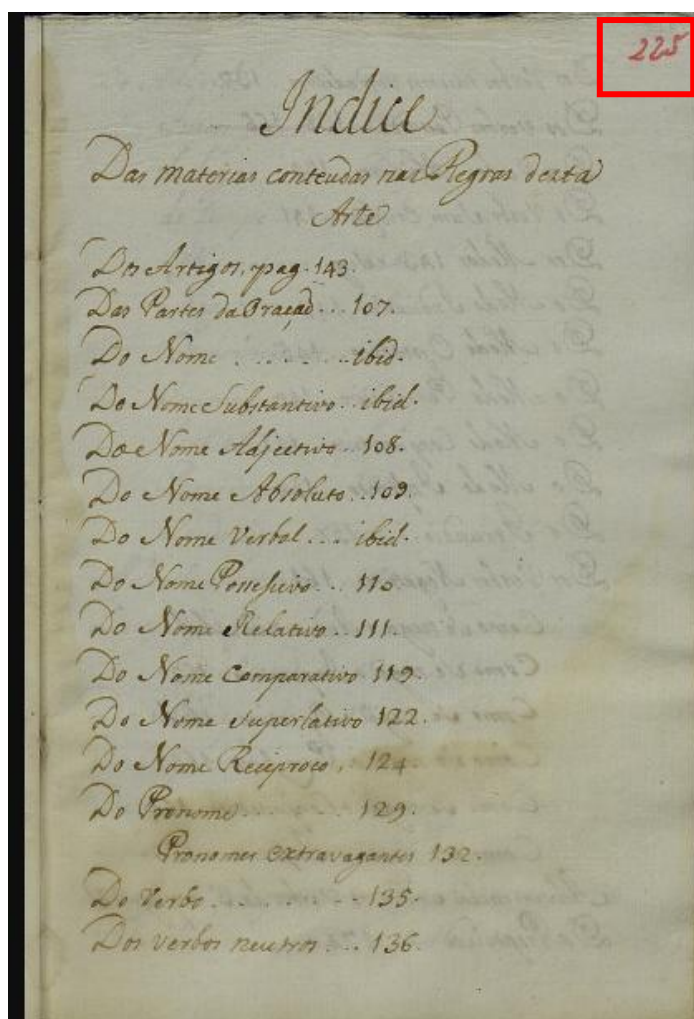 225
Indice
Das materias conteudas nas Regras desta
Arte
Dos Artigos, pag. 143.
Das Partes da Oraçaõ... 107.
Do Nome ......... ibid.
Do Nome Substantivo. ibid.
Do Nome Adjectivo.. 108.
Do Nome Absoluto.. 109.
Do Nome Verbal... ibid.
Do Nome Possesivo.. 110
Do Nome Relativo.. 111.
Do Nome Comparativo 119.
Do Nome Superlativo 122.
Do Nome Reciproco, 124.
Do Pronome ........ 129.
Pronomes extravagantes 132.
Do Verbo ......... 135.
Dos verbos neutros... 136.